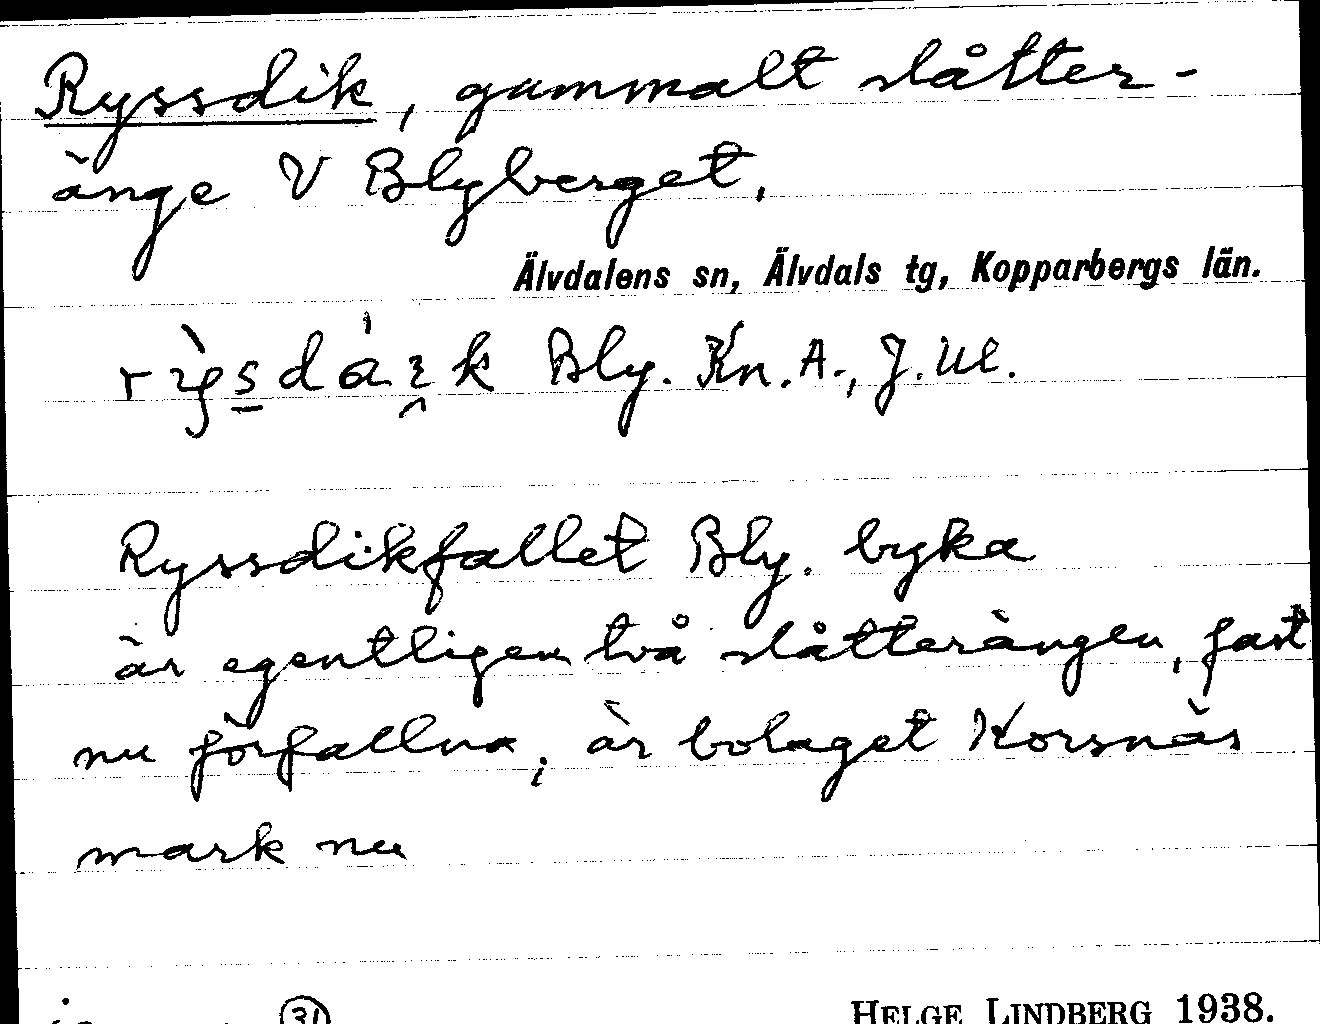 Ryssdik, gammalt slåtter-
änge V Blyberget.
Älvdalens sn, Älvdals tg, Kopparbergs län.
Bly. Kn. A., J. Ul.
Ryssdikfallet Bly. byka
är egentligen två slåtterängen, fast
nu förfallna, är bolaget Korsnäs
mark nu
31
HELGE LINDBERG 1938.